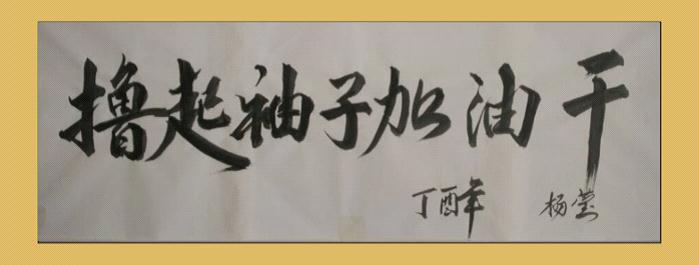 撸起袖子加油干
丁酉年 杨莹